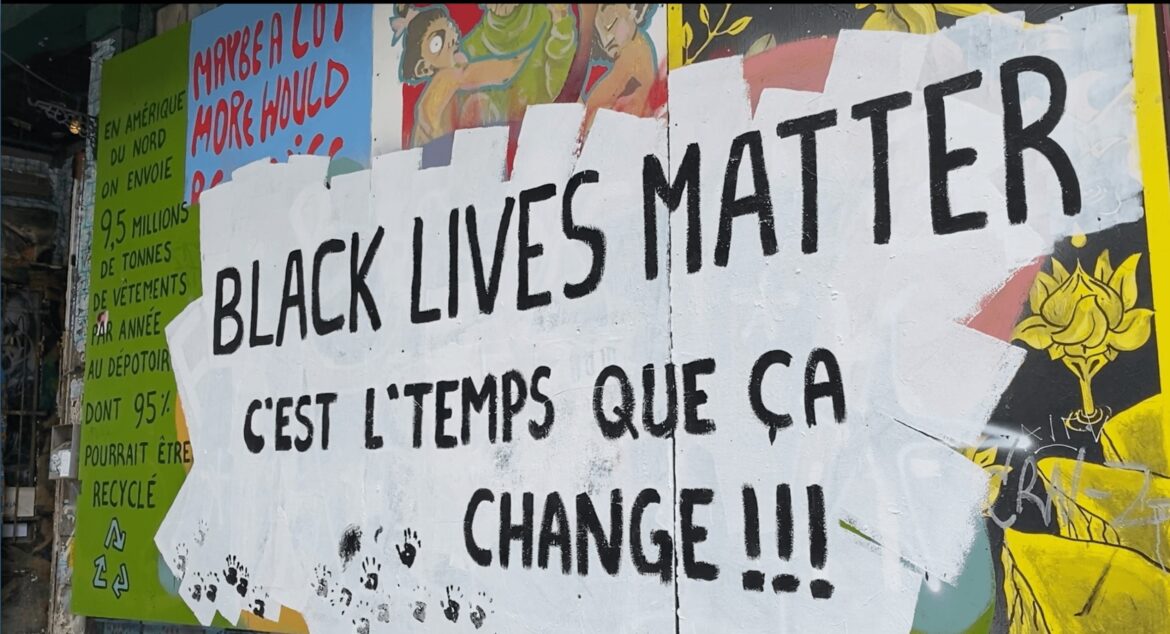 EN AMÉRIQUE
DU NORD
ON ENVOIE
9,5 MILLIONS
DE TONNES
DE VÊTEMENTS
PAR ANNÉE
AU DÉPOTOIR
DONT 95%
POURRAIT ÊTRE
RECYCLÉ
MAYBE A LOT
MORE WOULD
BLACK LIVES MATTER
C'EST L'TEMPS QUE ÇA
CHANGE !!!